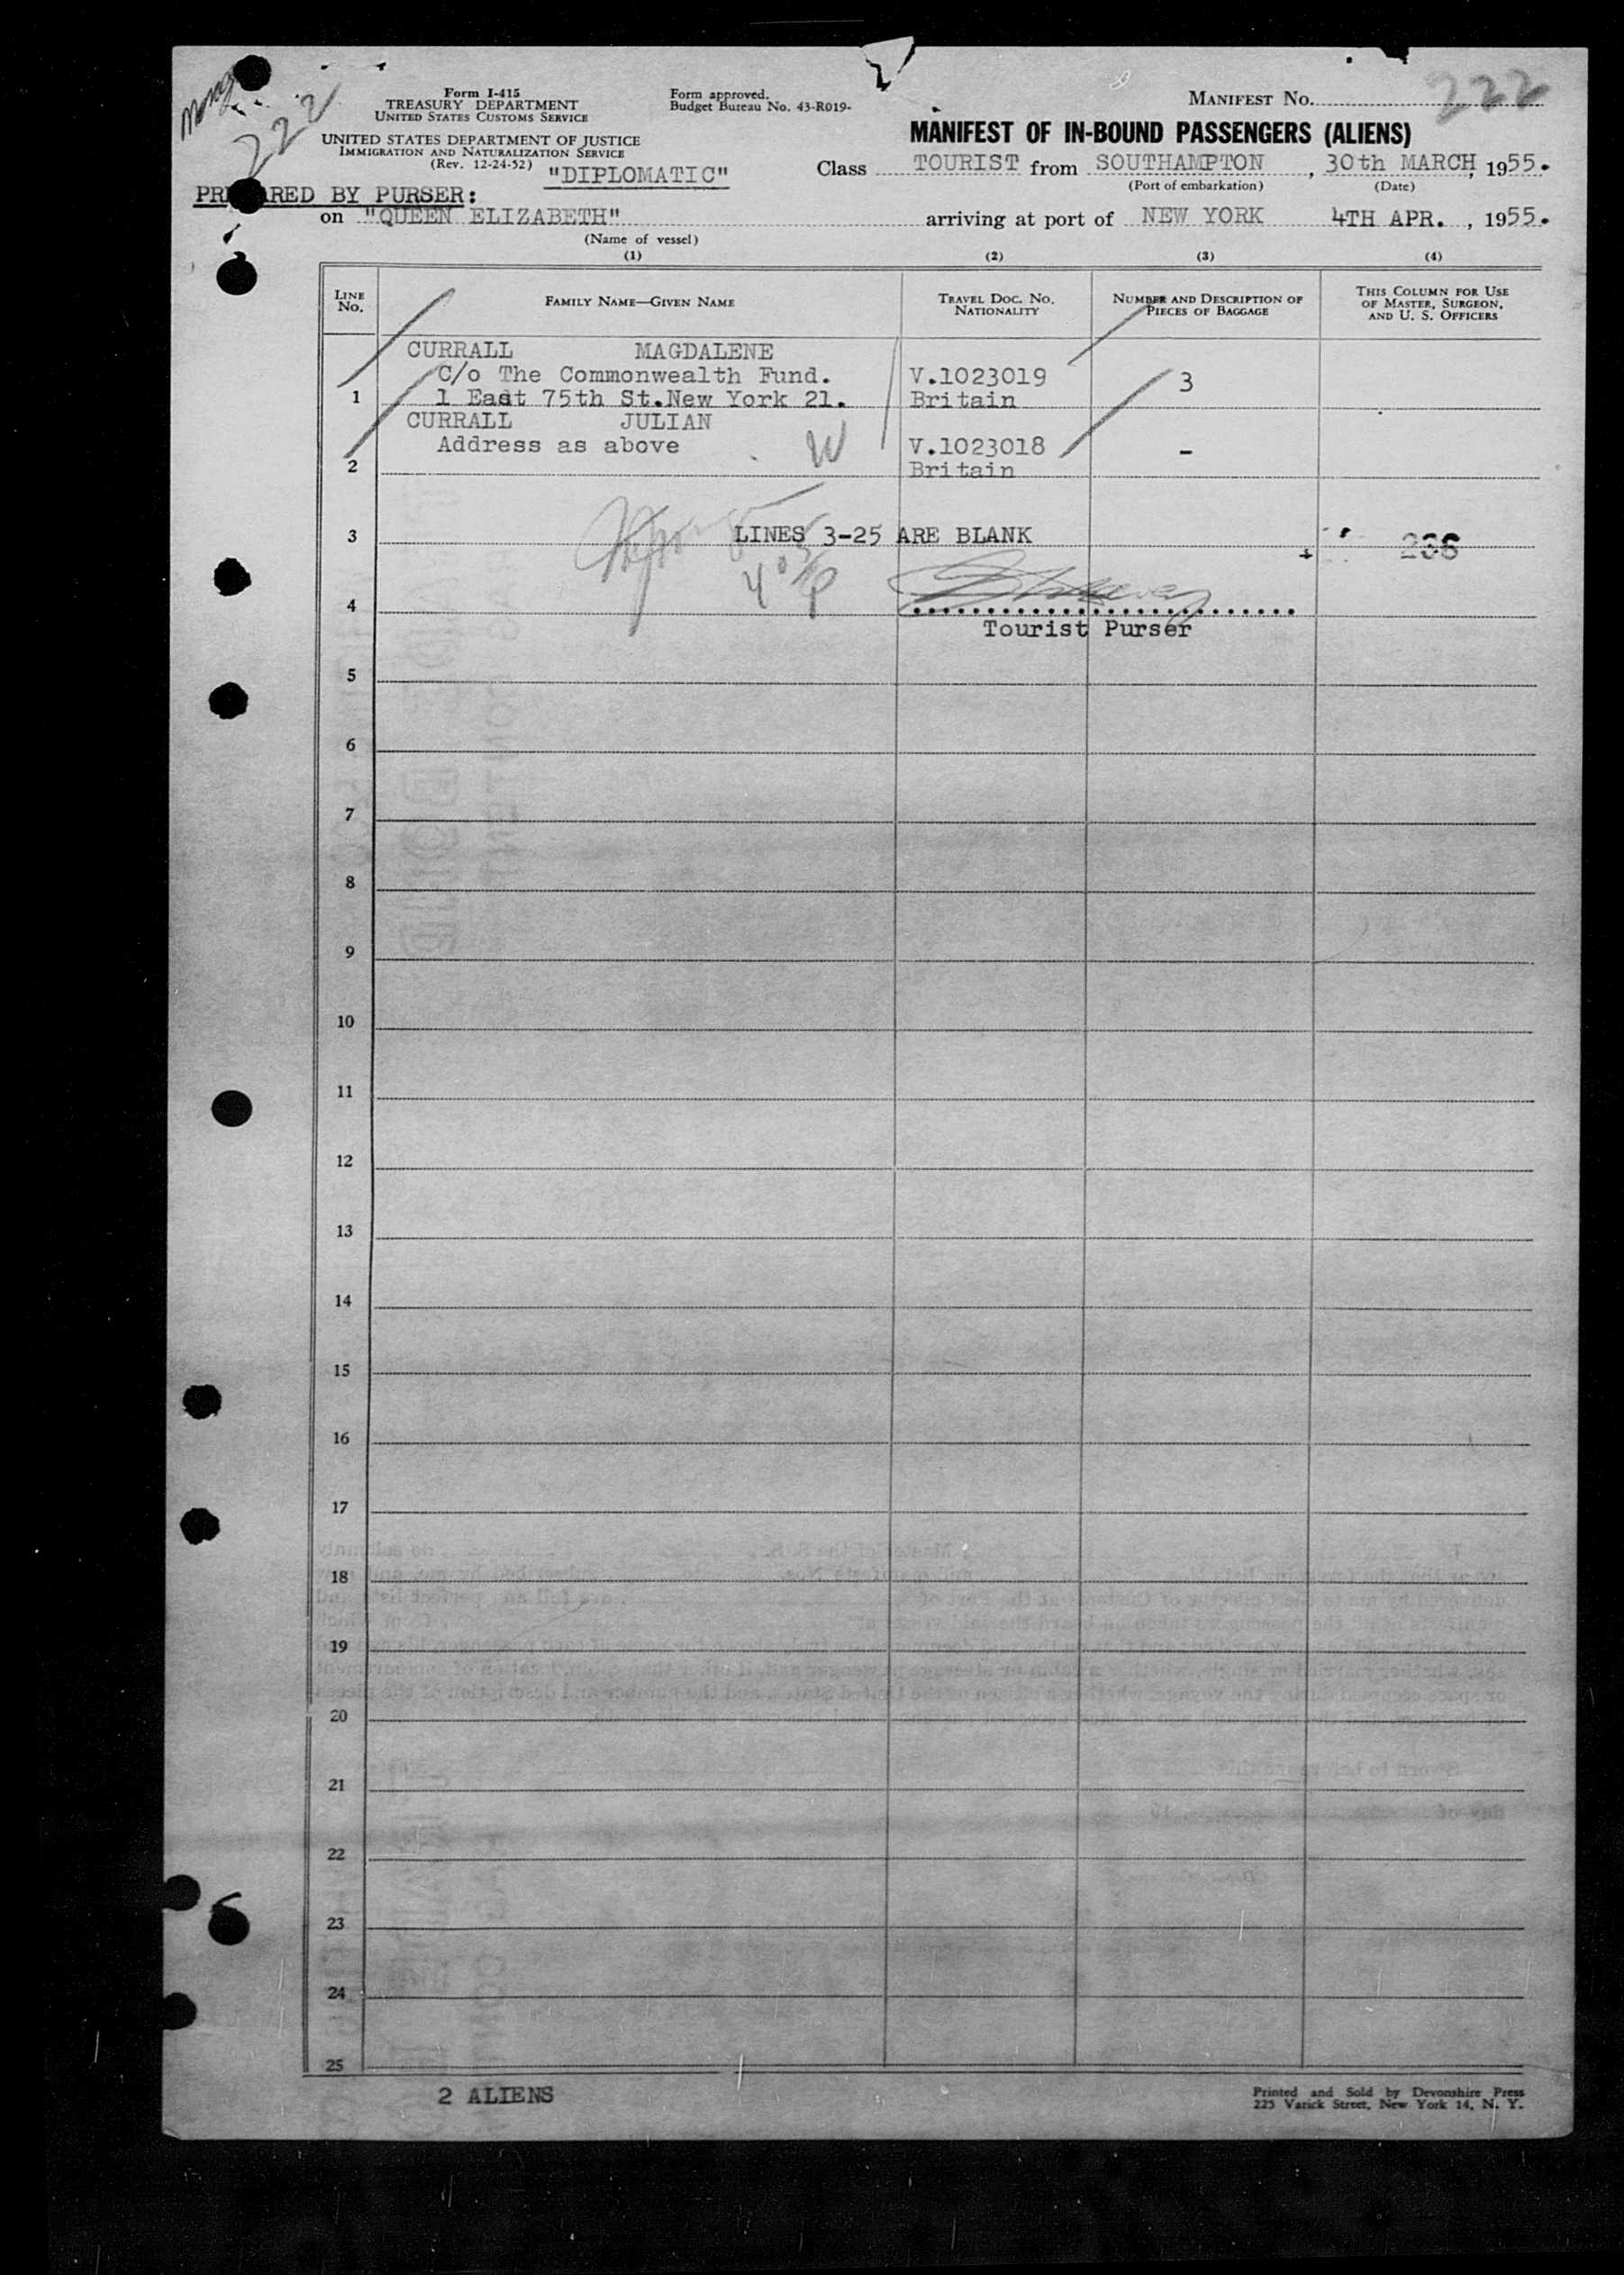 222
222
Form I-415
TREASURY DEPARTMENT
UNITED STATES CUSTOMS SERVICE
UNITED STATES DEPARTMENT OF JUSTICE
IMMIGRATION AND NATURALIZATION SERVICE
(Rev. 12-24-52)
"DIPLOMATIC"
Form approved.
Budget Bureau No. 43-R019-
MANIFEST NO.
MANIFEST OF IN-BOUND PASSENGERS (ALIENS)
Class TOURIST from SOUTHAMPTON, 30th MARCH, 1955.
(Port of embarkation) (Date)
PREPARED BY PURSER:
on "QUEEN ELIZABETH" arriving at port of NEW YORK 4TH APR., 1955.
(Name of vessel)
(1) (2) (3) (4)
LINE NO. FAMILY NAME—GIVEN NAME TRAVEL DOC. NO. NATIONALITY NUMBER AND DESCRIPTION OF PIECES OF BAGGAGE THIS COLUMN FOR USE OF MASTER, SURGEON, AND U. S. OFFICERS
CURRALL MAGDALENE
C/o The Commonwealth Fund. V.1023019 3
1 1 East 75th St.New York 21. Britain
CURRALL JULIAN
Address as above W V.1023018 -
2 Britain
3 LINES 3-25 ARE BLANK + 236
4
Tourist Purser
5
6
7
8
9
10
11
12
13
14
15
16
17
18
19
20
21
22
23
24
25
2 ALIENS
Printed and Sold by Devonshire Press
225 Varick Street, New York 14, N. Y.